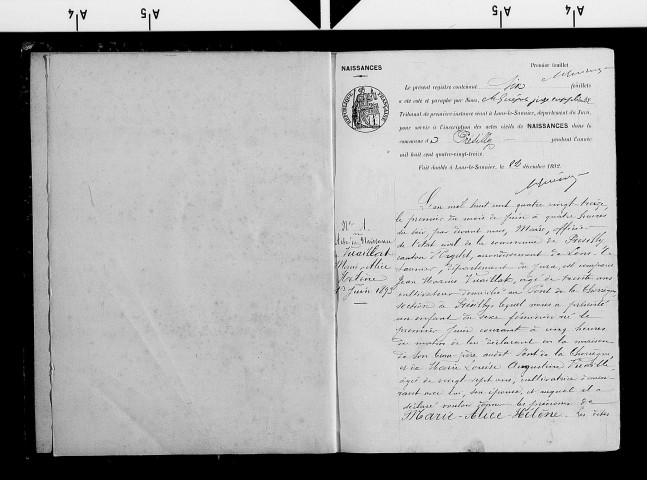 A4
A5
A5
A4
NAISSANCES
Premier feuillet
RÉPUBLIQUE FRANÇAISE
Le présent registre contenant Six feuillets
a été coté et paraphé par Nous, juge suppléant
Tribunal de première instance séant à Lons-le-Saunier, département du Jura,
pour servir à l'inscription des actes civils de NAISSANCES dans la
commune de pendant l'année
mil huit cent quatre-vingt-treize.
Fait double à Lons-le-Saunier, le décembre 1892.
N° 1.
Acte de Naissance
Vuaillat
Marie-Alice
Hélène
1er Juin 1893
L'an mil huit cent quatre vingt-treize,
le premier du mois de Juin à quatre heures
du soir, par devant nous, Maire, officier
de l'état civil de la commune de
canton d'Orgelet, arrondissement de Lons-le-
Saunier, département du Jura, est comparu
Jean Marius Vuaillat, âgé de trente ans
cultivateur domicilié au Pont de la
section de lequel nous a présenté
un enfant du sexe féminin né le
premier Juin courant à cinq heures
du matin de lui déclarant en la maison
de son beau-père audit Pont de la
et de Marie Louise Augustine
âgée de vingt sept ans, cultivatrice demeu-
rant avec lui, son épouse, et auquel il a
déclaré vouloir donner les prénoms de
Marie-Alice-Hélène. Les dites